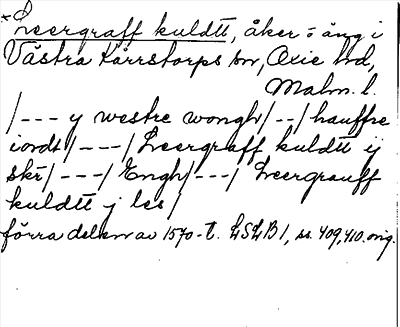 *Leergraff kuldtt, åker o äng i
Västra Kärrstorps sn, Oxie hd,
Malm. l.
/--- y westre wongh/--/hauffre
iordt/---/Leergraff kuldtt ij
skr/---/Engh/---/Leergrauff
kuldtt j les/
förra delen av 1570-t. LSLB1, ss. 409, 410. orig.